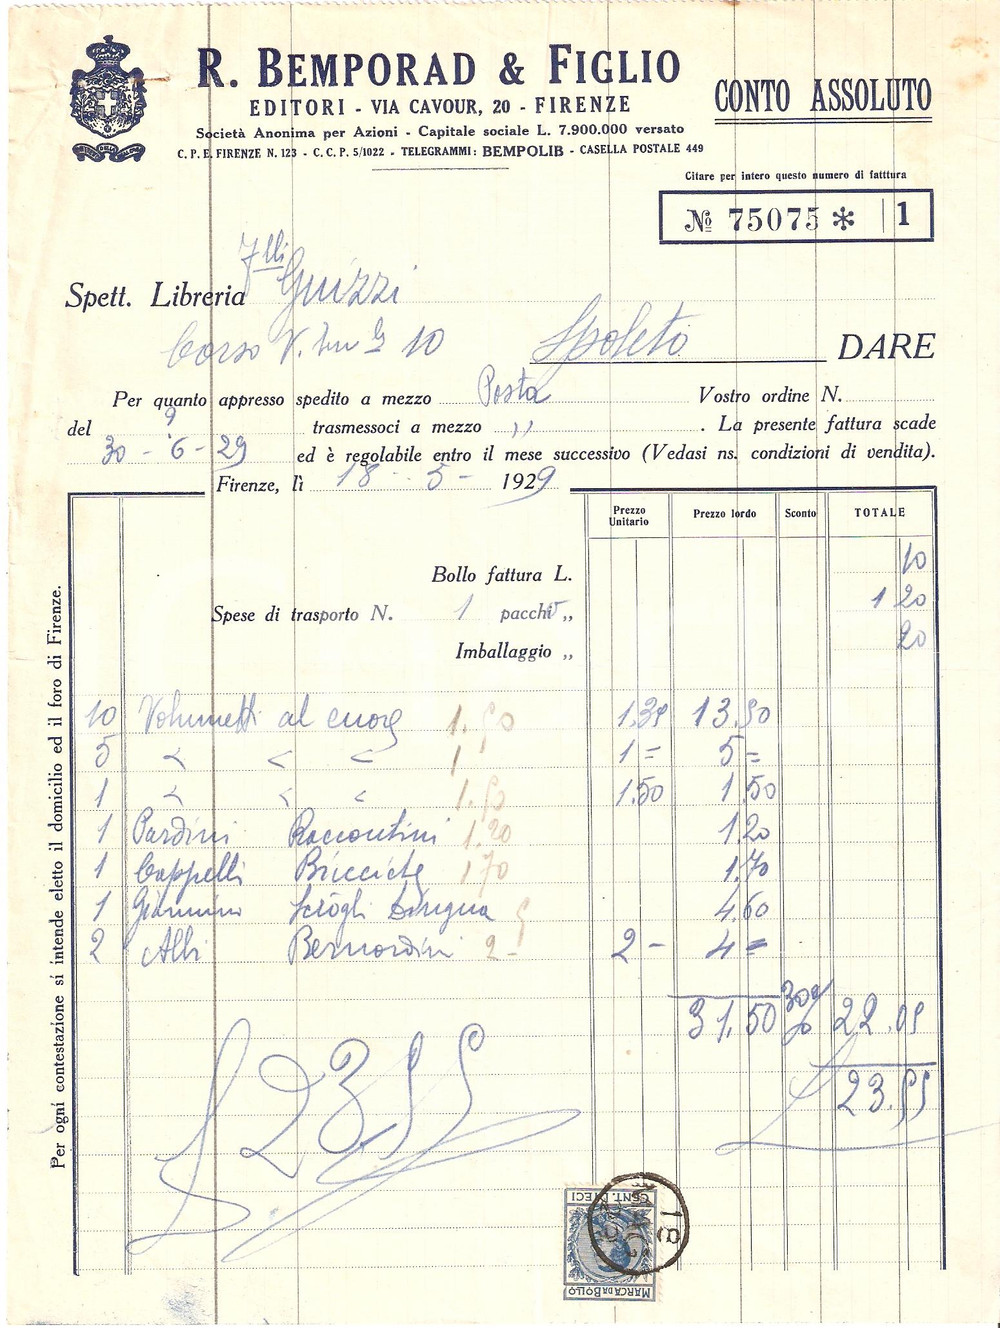 R. BEMPORAD & FIGLIO
EDITORI - VIA CAVOUR, 20 - FIRENZE
Società Anonima per Azioni - Capitale sociale L. 7.900.000 versato
C. P. E. FIRENZE N. 123 - C. C. P. 5/1022 - TELEGRAMMI: BEMPOLIB - CASELLA POSTALE 449
CONTO ASSOLUTO
Citare per intero questo numero di fatttura
Nº 75075 * 1
Spett. Libreria Flli Guizzi
Corso V. Em 10 Spoleto DARE
Per quanto appresso spedito a mezzo Posta Vostro ordine N.
del 9 trasmessoci a mezzo ,, . La presente fattura scade
30 - 6 - 29 ed è regolabile entro il mese successivo (Vedasi ns. condizioni di vendita).
Firenze, lì 18 - 5 - 1929
Prezzo Unitario Prezzo lordo Sconto TOTALE
Bollo fattura L. 10
Spese di trasporto N. 1 pacchi ,, 1 20
Imballaggio ,, 20
10 Volumetti al cuore 1.50 1.39 13.50
5 < < < 1 1 = 5 =
1 < < < 1.50 1.50 1.50
1 Pardini Raccontini 1.20 1.20
1 Cappelli Bricciche 1.70 1.70
1 Giannino Sciogli Lingua 5 4.60
2 Albi Bernardini 2 - 2 - 4 =
31.50 30% 22.05
L 23.55
L 2355
Per ogni contestazione si intende eletto il domicilio ed il foro di Firenze.
CENT. DIECI
MARCA DA BOLLO